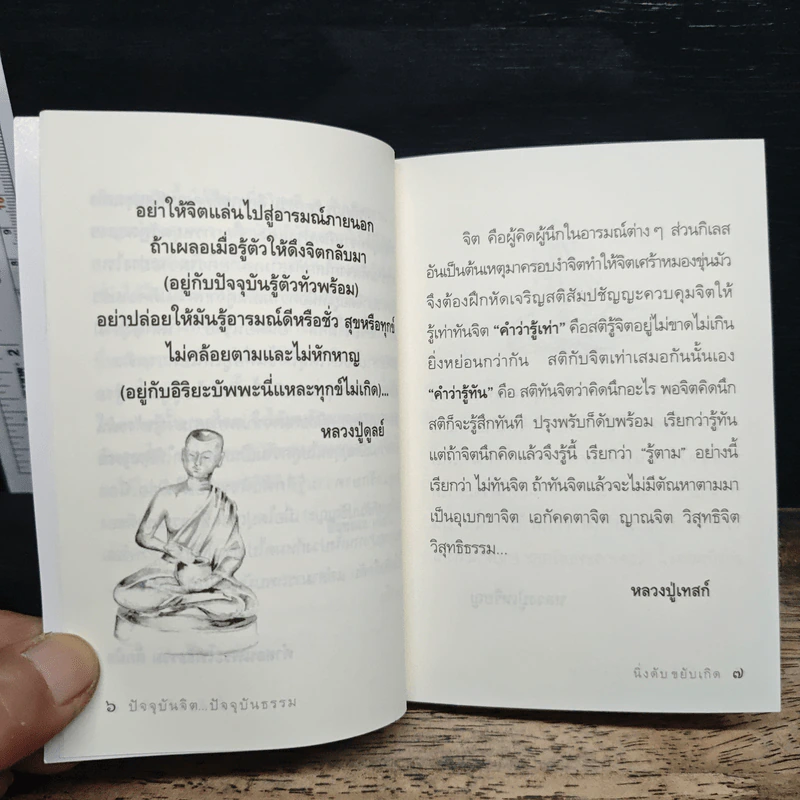 อย่าให้จิตแล่นไปสู่อารมณ์ภายนอก
ถ้าเผลอเมื่อรู้ตัวให้ดึงจิตกลับมา
(อยู่กับปัจจุบันรู้ตัวทั่วพร้อม)
อย่าปล่อยให้มันรู้อารมณ์ดีหรือชั่ว สุขหรือทุกข์
ไม่คล้อยตามและไม่หักหาญ
(อยู่กับอิริยะบัพพะนี่แหละทุกข์ไม่เกิด)...
หลวงปู่ดูลย์
๖ ปัจจุบันจิต...ปัจจุบันธรรม
จิต คือผู้คิดผู้นึกในอารมณ์ต่าง ๆ ส่วนกิเลส
อันเป็นต้นเหตุมาครอบงำจิตทำให้จิตเศร้าหมองขุ่นมัว
จึงต้องฝึกหัดเจริญสติสัมปชัญญะควบคุมจิตให้
รู้เท่าทันจิต “คำว่ารู้เท่า” คือสติรู้จิตอยู่ไม่ขาดไม่เกิน
ยิ่งหย่อนกว่ากัน สติกับจิตเท่าเสมอกันนั้นเอง
“คำว่ารู้ทัน” คือ สติทันจิตว่าคิดนึกอะไร พอจิตคิดนึก
สติก็จะรู้สึกทันที ปรุงพรับก็ดับพร้อม เรียกว่ารู้ทัน
แต่ถ้าจิตนึกคิดแล้วจึงรู้นี้ เรียกว่า “รู้ตาม” อย่างนี้
เรียกว่า ไม่ทันจิต ถ้าทันจิตแล้วจะไม่มีตัณหาตามมา
เป็นอุเบกขาจิต เอกัคคตาจิต ญาณจิต วิสุทธิจิต
วิสุทธิธรรม...
หลวงปู่เทสก์
นิ่งดับ ขยับเกิด ๗